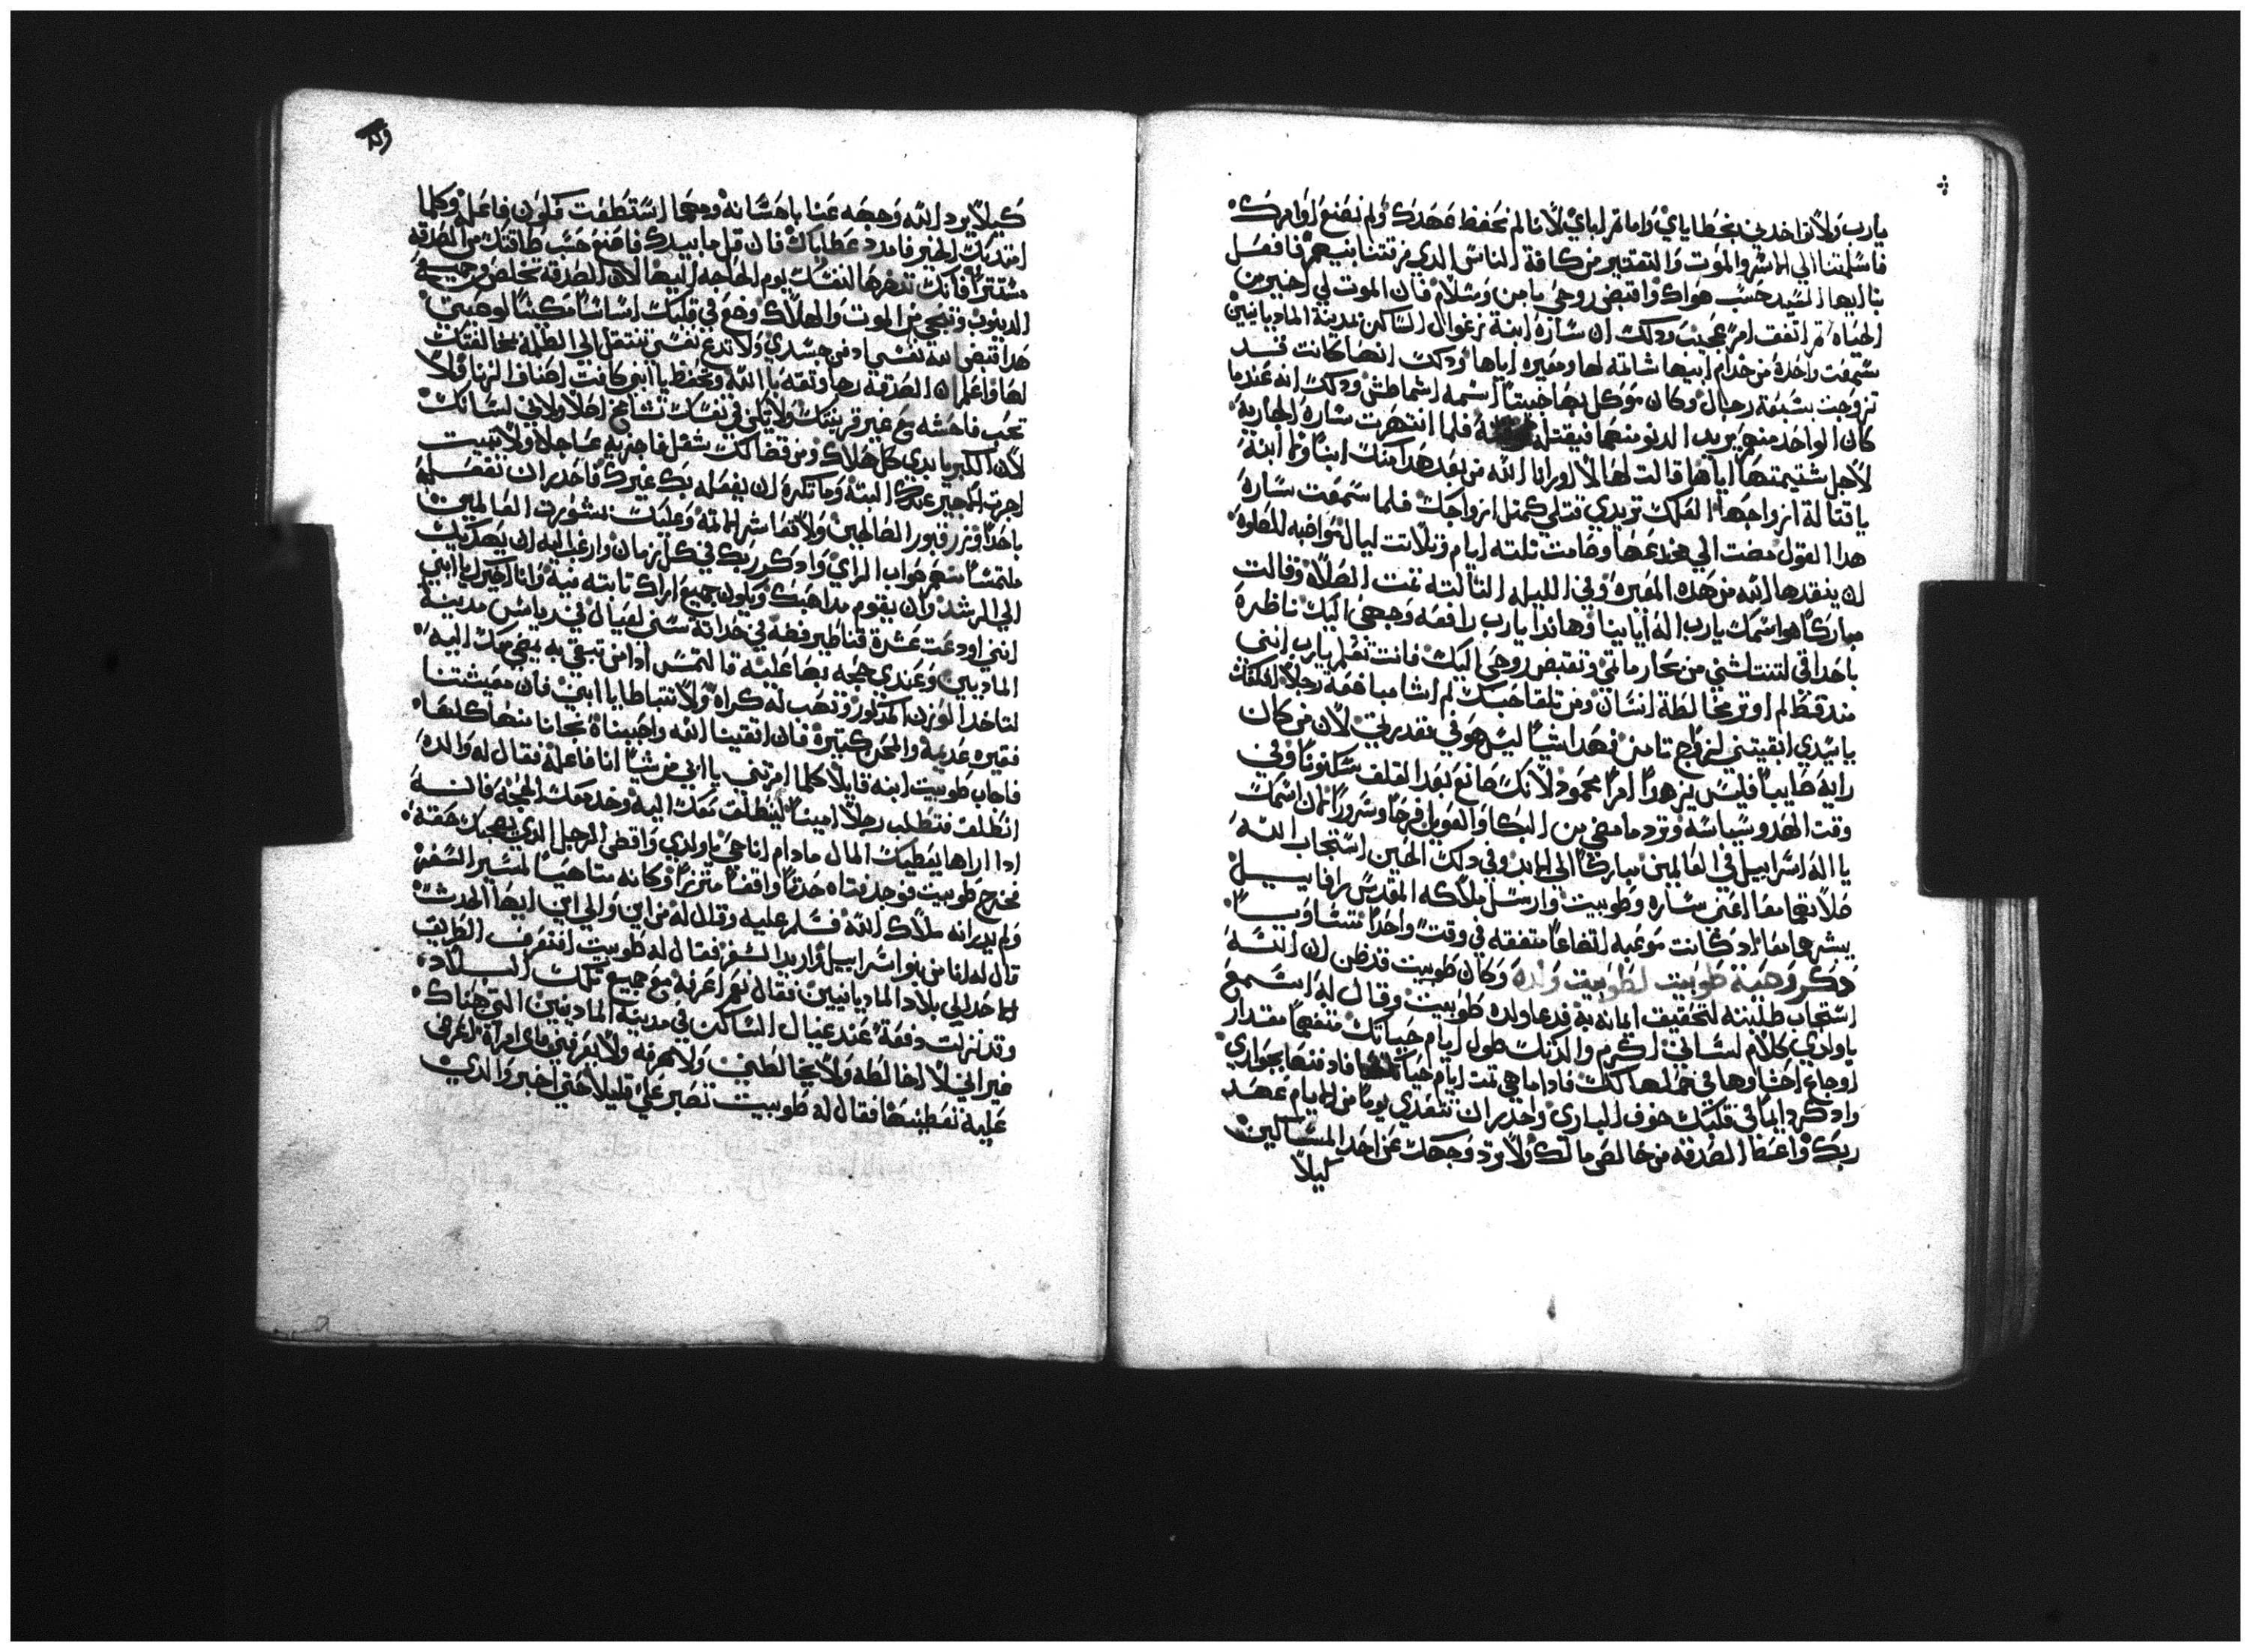 يارب ولا تواخدني بخطاياي واماتم لباي لاننا لم نحفظ عهدك ولم نصنع اوامرك
فاسلمتنا الي الاسر والموت والتعتير من كافة الناس الدي فرقتنا بينهم فافعل
بنا ايها السيد حسب هواك واقبض روحي بامن وسلام فان الموت لي اخير من
الحياه ثم اتفق امر عجيب ودلك ان ساره ابنة رغوال الساكن بمدينة الماديانيين
سمعت واحدة من خدام ابيها شاتمه لها ومعيره اياها ودلك انها كانت قد
تزوجت بسبعة رجال وكان موكل بها خبيثا اسمه اشماطش ودلك انه عندما
كان الواحد منهم يريد الدنو منها فيقتله فلما انتهرت ساره الجارية
لاجل شتيمتها اياها قالت لها لا اورانا الله من بعد هدا منك ابنا ولا ابنة
يا قتالة ازواجها لعلك تريدي قتلي كمثل ازواجك فلما سمعت سارة
هدا القول مضت الي مخدعها وصامت تلته ايام وتلاتت ليال مواضبه للصلوة
ان ينقدها الله من هده المعيره وفي الليله التالته تمت الصلاة وقالت
مباركا هو اسمك يارب اله ابايينا وهاندا يارب رافعه وجهي اليك ناظرة
باحداقي لتنتاشني من عار مالتي وتقبض روحي اليك فانت تعلم يارب انني
مند قط لم اوتر مخالطة انسان ومن تلقا حبك لم اشا مباضعة رجلا
يا سيدي ابقيتني لزواج تامن فهدا شيا ليس هو في تقديرتي لان من كان
رايه صايبا فليس يزهدا امرا محمود لانك صانع بعد القلق سكونا وفي
وقت الهدو سياسه وترد مامضي من البكا والعويل فرحا وسرورا لان اسمك
يا اله اسراييل في العالمين مباركا الي الابد وفي دلك الحين استجاب الله
صلاتهما معا اعني ساره وطوبيت وارسل ملاكه المقدس رافاييل
يبشرهما معا اد كانت موعبه التضاعا متفقه في وقت واحدا متساويا
دكر وصية طوبيت لطوبيت ولده وكان طوبيت قد ظن ان الله
استجاب طلبته لتحقيق ايمانه به فدعا ولده طوبيت وقال له اسمع
يا ولدي كلام لساني اكرم والدتك طول ايام حياتك متفهما مقدار
اوجاع احشاوها في حملها لك فادا ما هي تمت ايام حياتها فادفنها بجواري
وادكر دايما في قلبك خوف الباري واحدر ان تتعدي يوما من الايام عهد
ربك واعط الصدقه من خالص مالك ولا ترد وجهك عن احد المساكين
ليلا
كيلا يرد الله وجهه عنا باحسانه ومهما استطعت فلون فاعلم وكلما
امتديك الخير فامدد عطاياك فان قل ما بيدك فاصنع حسب طاقتك من الصدقه
مستترا فانك تدخرها لنفسك يوم الحاجه اليها لان الصدقه تخلص من جميع
الدنوب وتنجي من الموت والهلاك وضع في قلبك اساسا مكينا لوصيتي
هدا اقبض الله نفسي ادفن جسدي ولا تدع نفسي تنتقل الي الظلمة مخالفتك
لها واعلم ان الصدقه رجا وتقه بالله وتحفظ يا ابني كانت اصناف الزنا فلا
تحب فاحشه مع غير قرينتك ولا يكن في نفسك تشامخ اصلا ولا في لسانك
لان الكبريا بدي كل هلاك ومن قضا لك شغل فاجزيه عاجلا ولا تبيت
اجرة الاجير عندك البته وما تكره ان يفعله بك غيرك فاحدر ان تفعله
باحدا وزر قبور الصالحين ولا تعاشر الاتمه وعليك بمشورة العالمين
ملتمسا منهم صواب الراي وادكر ربك في كل زمان وارغب اليه ان يهديك
الي الرشد وان يقوم مداهبك ويكون جميع اراك تابته فيه وانا اخبرك يا ابني
انني اودعت عشرة قناطير فضه في حداتة سني لغيال في رياس مدينة
الماديين وعندي حجه بها عليه فالتمس ادا من تبقي به يمضي معك اليه
لتاخد الوزن المدكور وتهب له كراه ولا تتباطا يا ابني فان معيشتنا
فقيره عديمة والمحن كتيرة فان اتقينا الله واحببناه نجانا منها كلها
فاجاب طوبيت ابنه قايلا كلما امرتني يا ابي من شيا انا فاعله فقال له والده
انطلق فتطلب رجلا امينا لينطلق معك اليه وخد معك الحجه فانه
ادا اراها يعطيك المال مادام انا حي يا ولدي واقضي الرجل الدي يصحبك حقه
فخرج طوبيت فوجد فتاه حدتا واقفا متزنرا وكانه متاهبا لمسير السفر
ولم يدر انه ملاك الله فسلم عليه وقال له من اين والي اين ايها الحدث
قال له انا من بنوا اسراييل اريد السفر فقال له طوبيت افتعرف الطريق
الاخد الي بلاد الماديانيين فقال نعم اعرفه مع جميع تلك البلاد
وقد نزلت دفعة عند غيال الساكن في مدينة الماديين التي هناك
غير اني لا اخالطه ولا يخالطني ولا اعرفه ولا يعرفني
عليه تعطينها فقال له طوبيت تصبر علي قليلا حتي اخبر والدي